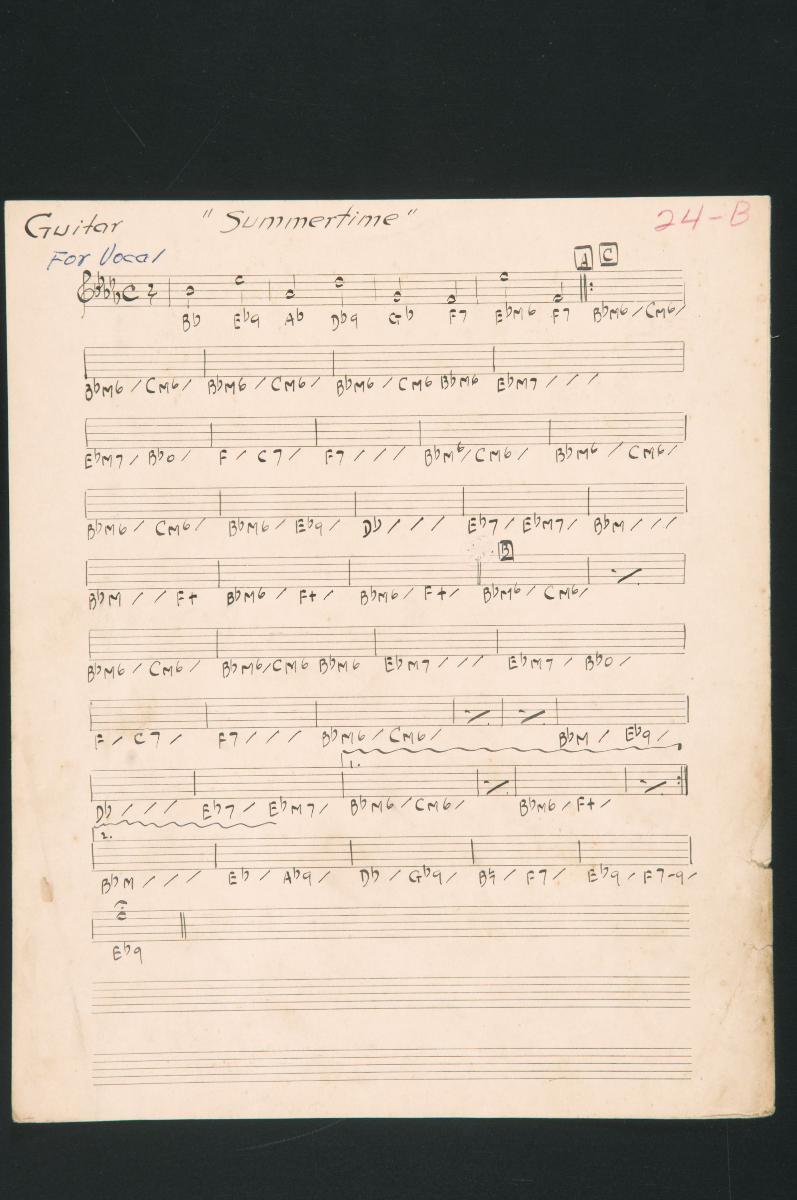 Guitar "Summertime" 24-B
For Vocal
A C
Bb Eb9 Ab Db9 Gb F7 EbM6 F7 BbM6 / CM6 /
BbM6 / CM6 / BbM6 / CM6 / BbM6 / CM6 BbM6 EbM7 / / /
EbM7 / Bbo / F / C7 / F7 / / / BbM6 / CM6 / BbM6 / CM6 /
BbM6 / CM6 / BbM6 / Eb9 / Db / / / Eb7 / EbM7 / BbM / / /
B
BbM / / F+ BbM6 / F+ / BbM6 / F+ / BbM6 / CM6 /
BbM6 / CM6 / BbM6 / CM6 BbM6 EbM7 / / / EbM7 / Bbo /
F / C7 / F7 / / / BbM6 / CM6 / BbM / Eb9 /
1.
Db / / / Eb7 / EbM7 / BbM6 / CM6 / BbM6 / F+ /
2.
BbM / / / Eb / Ab9 / Db / Gb9 / B♮ / F7 / Eb9 / F7-9 /
Eb9